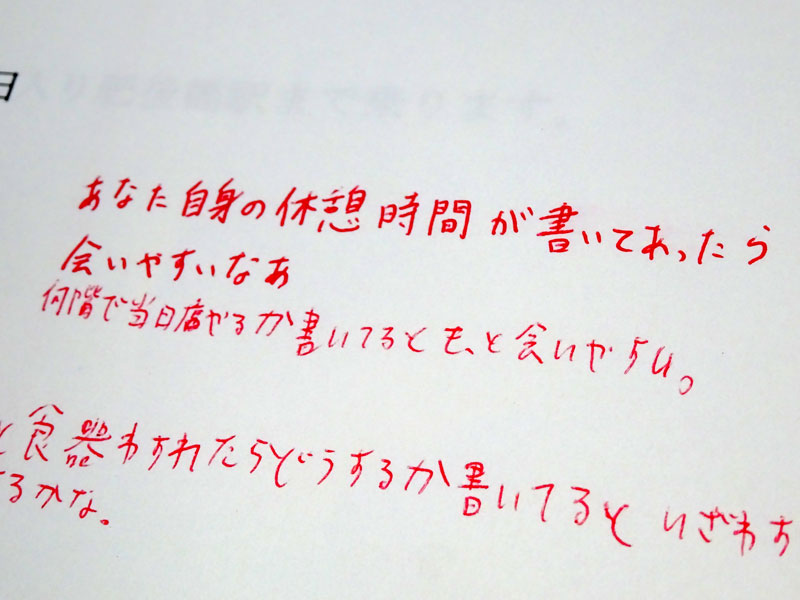 日
あなた自身の休憩時間が書いてあったら
会いやすいなあ
何階で当日店やるか書いてるともっと会いやすい。
と食器わすれたらどうするか書いてると いざわす
るかな。